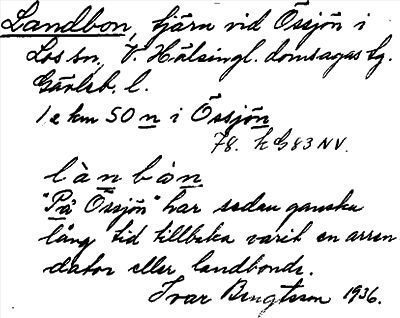 Landbon, tjärn vid Össjön i
Los sn, V. Hälsingl. domsagas tg.
Gävleb. l.
1 e km SO n i Össjön
78. h G 83 NV.
lànbòn
"På Össjön" har sedan ganska
lång tid tillbaka varit en arren
dator eller landbonde.
Ivar Bengtsson 1936.